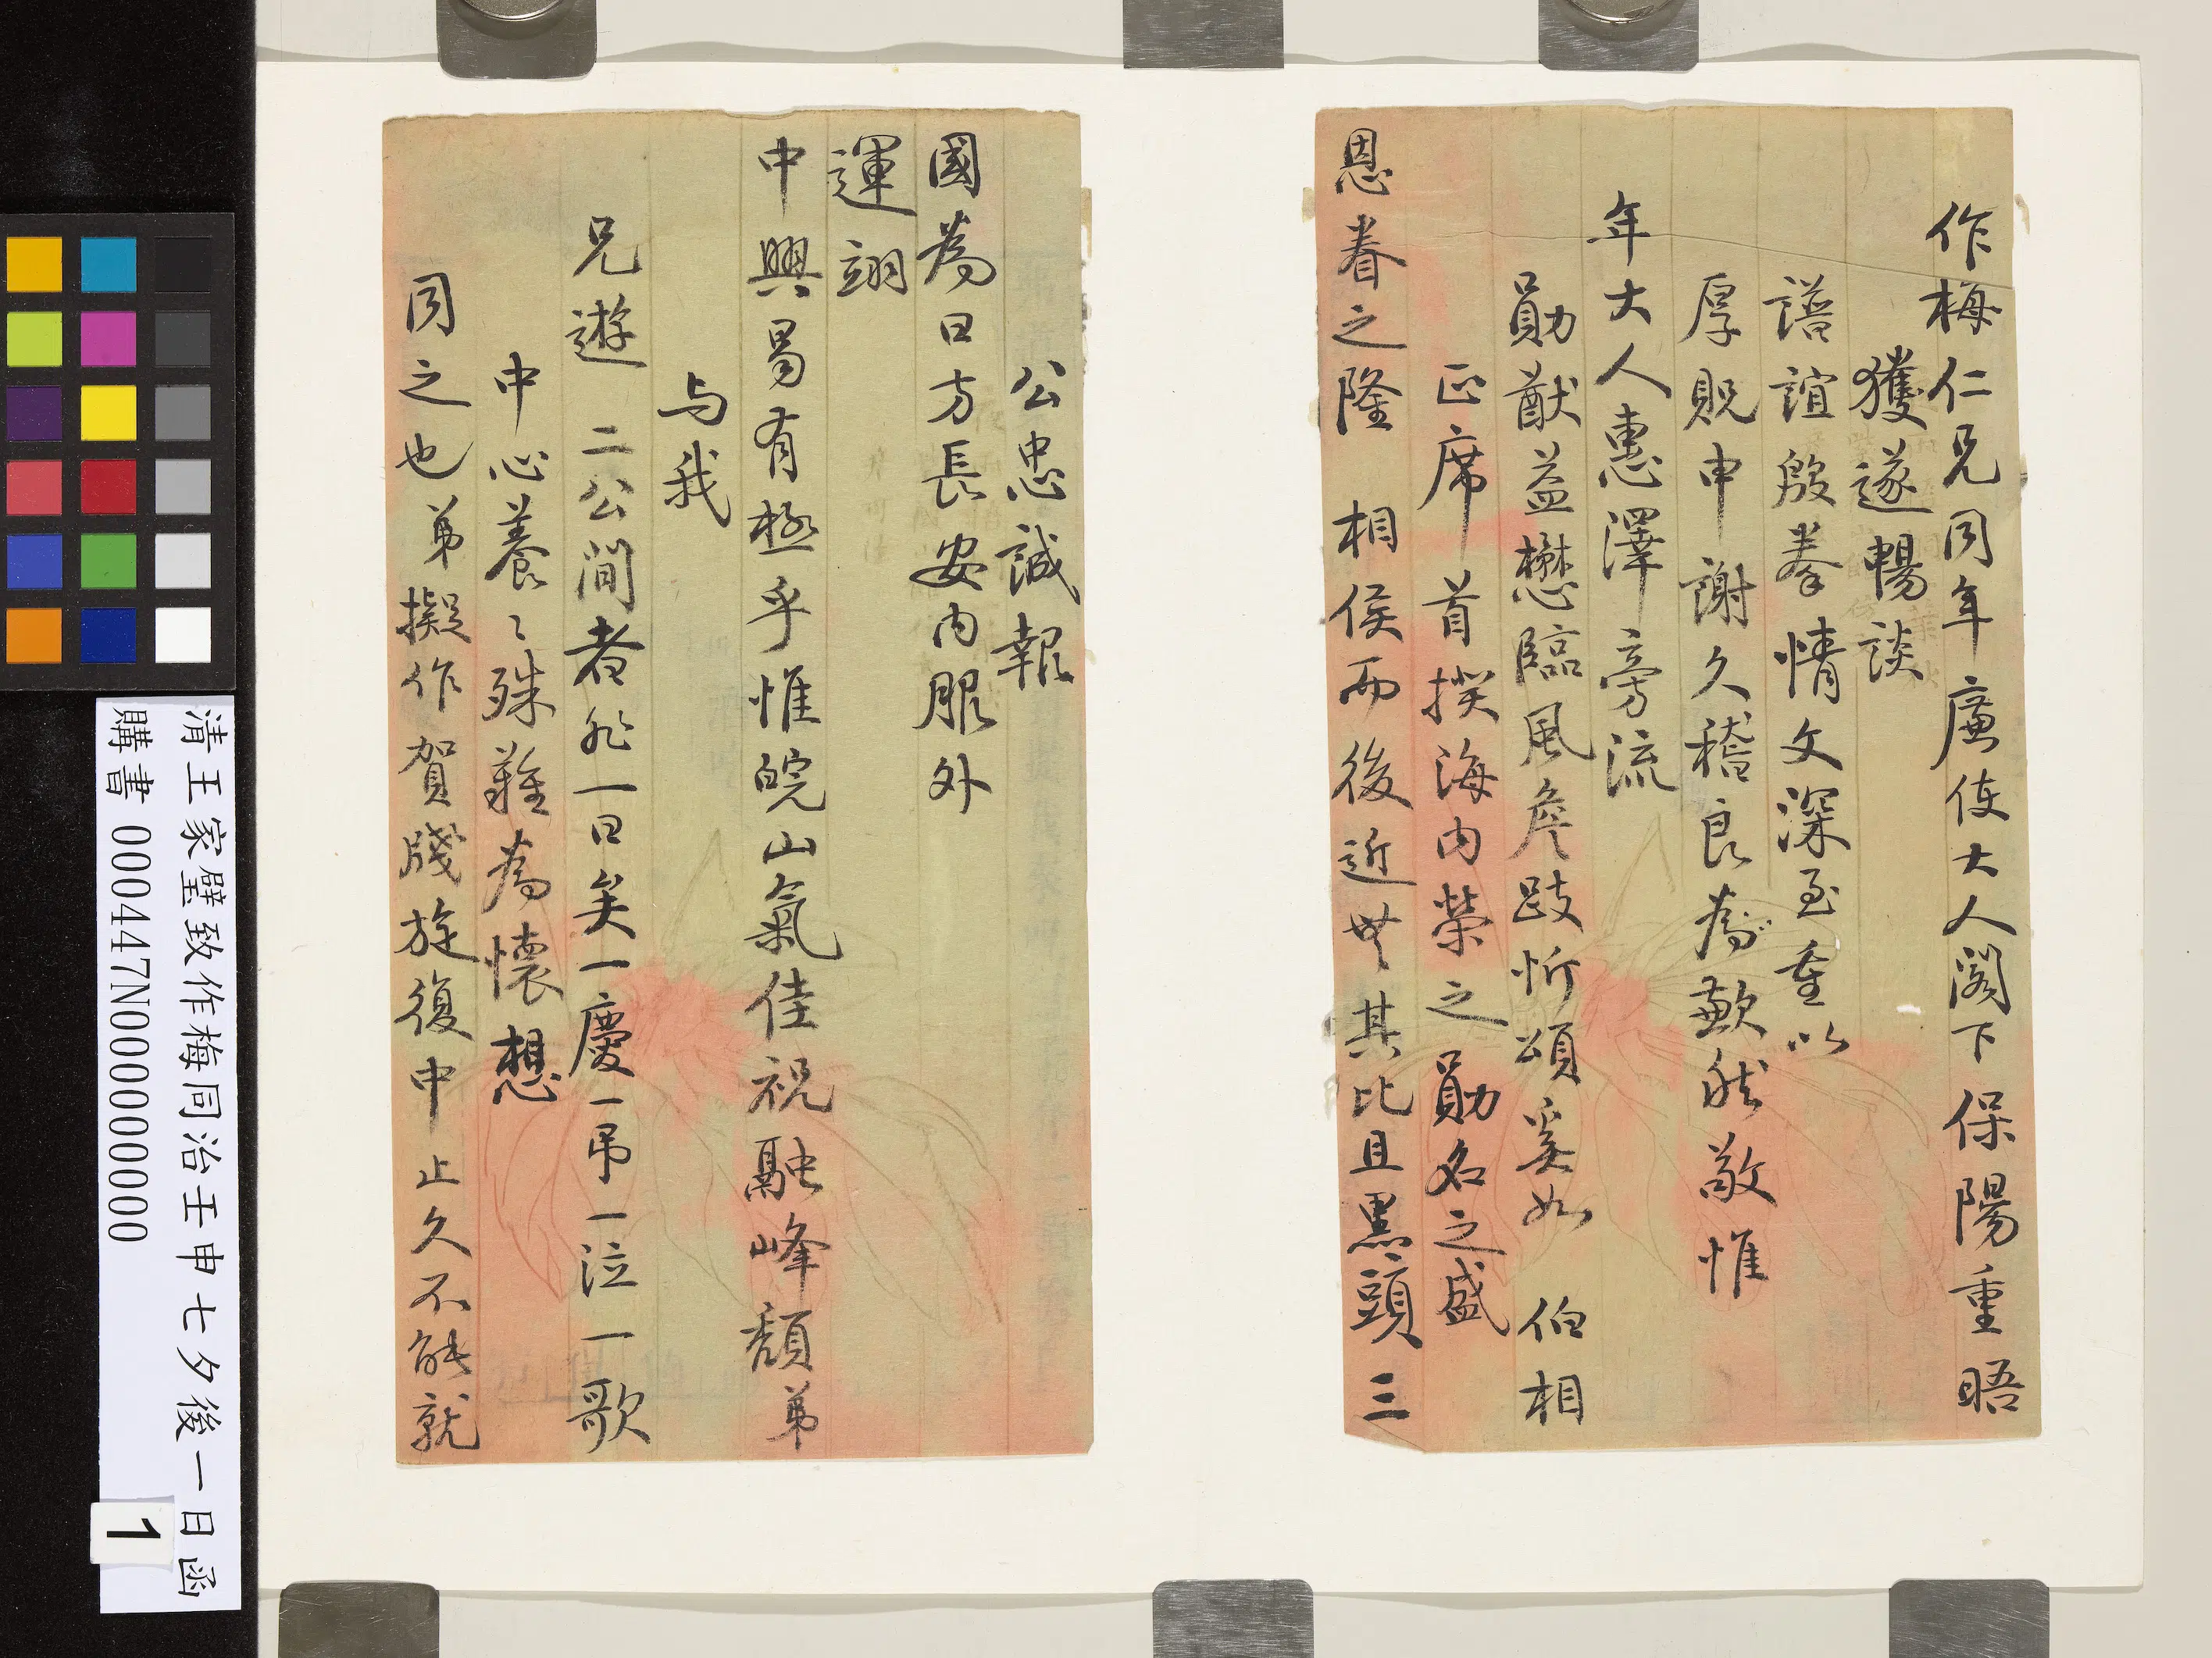 作梅仁兄同年廉使大人閣下保陽重晤
獲遂暢談
譜誼殷拳情文深至重以
厚貺申謝久稽良為歉然敬惟
年大人惠澤旁流
勛猷益懋臨風詹跂忻頌奚如 伯相
正席 首揆海內榮之勛名之盛
恩眷之隆 相侯而後近世其比且黑頭三
公忠誠報
國為日方長安內服外
運翊
中興曷有極乎惟皖山氣佳祝融峰頹弟
与我
兄遊 二公間者非一日矣一慶一弔一泣一歌
中心養養殊難為懷想
同之也弟擬作賀牋旋復中止久不能就
清王家璧致作梅同治壬申七夕後一日函
購書 000447N000000000
1